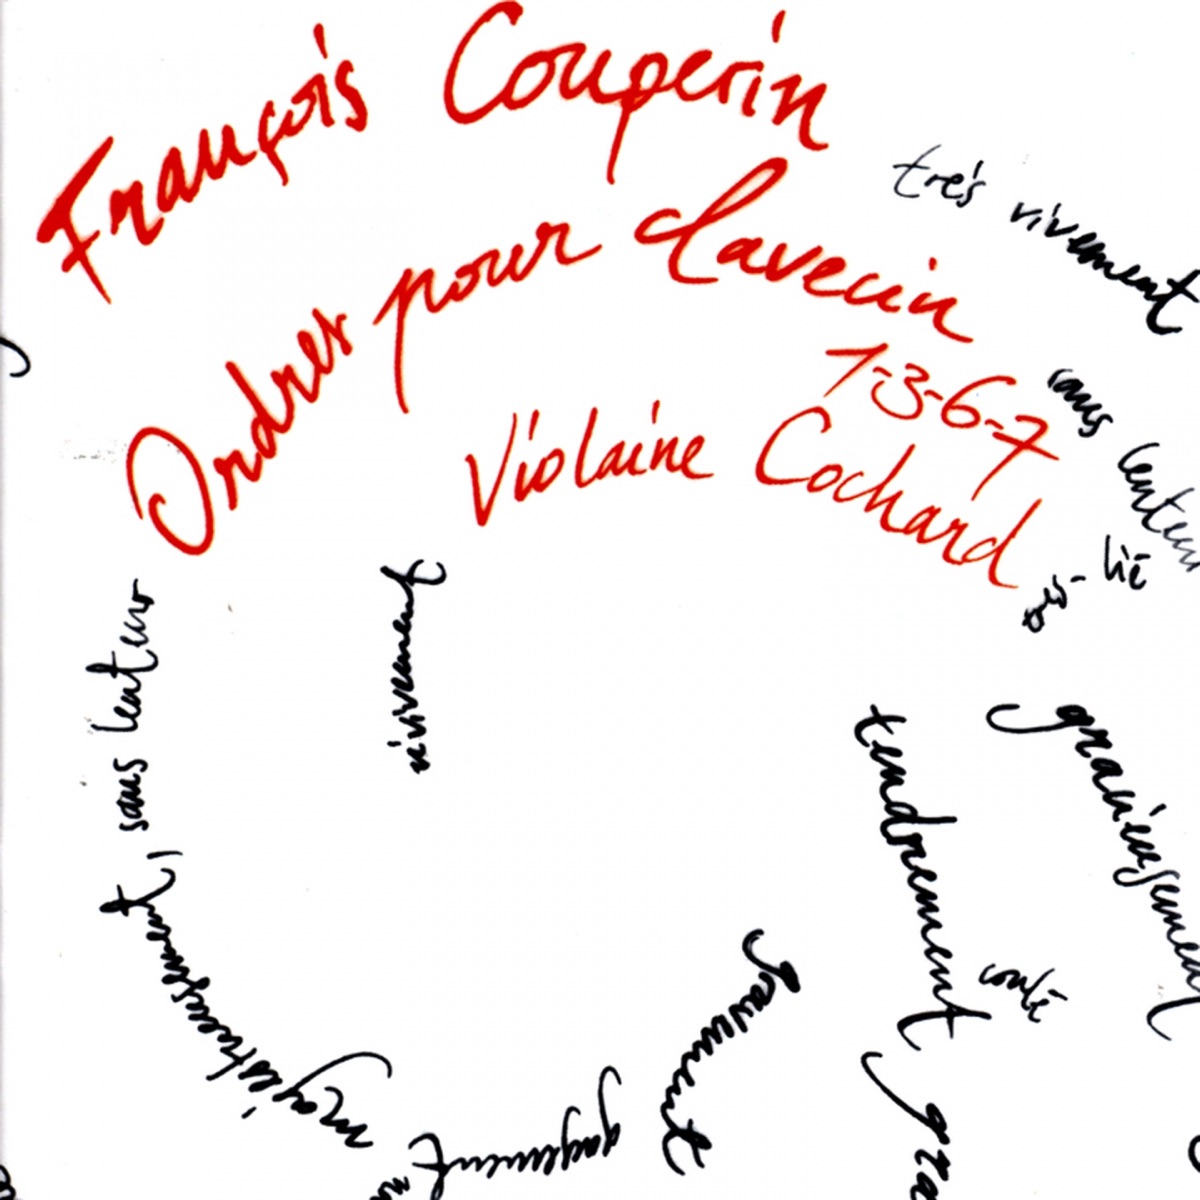 François Couperin
Ordres pour clavecin
1-3-6-7
Violaine Cochard
très vivement
sans lenteur
lié
tendrement
gracieusement
coulé
gravement
gayement
majestueusement, sans lenteur
vivement
gra